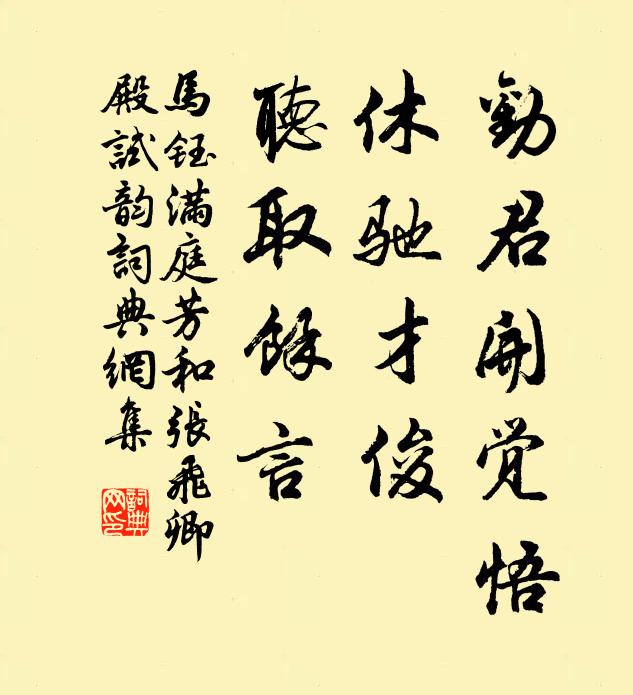 勸君開覚悟
休馳才俊
聽取餘言
馬鈺滿庭芳和張飛卿
殿試韵詞典網集
詞典网印